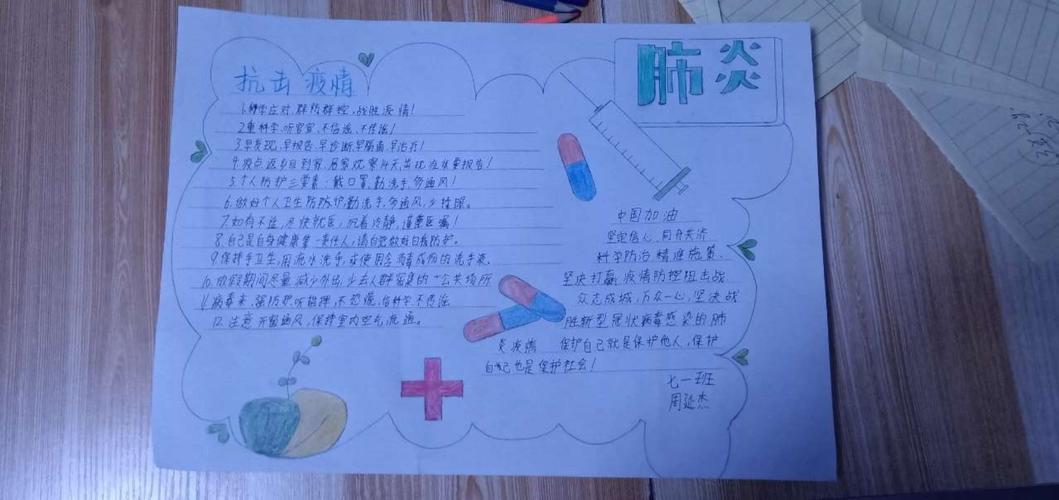 肺炎
抗击疫情
1.科学应对,群防群控,战胜疫情!
2.重科学,听官宣,不信谣,不传谣!
3.早发现,早报告,早诊断,早隔离,早治疗!
4.疫点返乡应到家,居家观察14天,出现症状要报告!
5.个人防护三要素:戴口罩,勤洗手,多通风!
6.做好个人卫生防护勤洗手,多通风,少接踪。
7.如有不适,尽快就医,沉着冷静,谨遵医嘱!
8.自己是自身健康第一责任人,请自觉做好自我防护。
9.保持手卫生,用流水洗手,或使用含消毒成份的洗手液
10.放假期间尽量减少外出,少去人群密集的公共场所
11.病毒来,强防护听指挥,不恐慌,信科学不信谣
12.注意开窗通风,保持室内空气流通。
中国加油
坚定信心,同舟共济
科学防治精准施策、
坚决打赢疫情防控阻击战
众志成城,万众一心,坚决战
胜新型冠状病毒感染的肺
炎疫情 保护自己就是保护他人,保护
自己也是保护社会!
七一班
周延杰